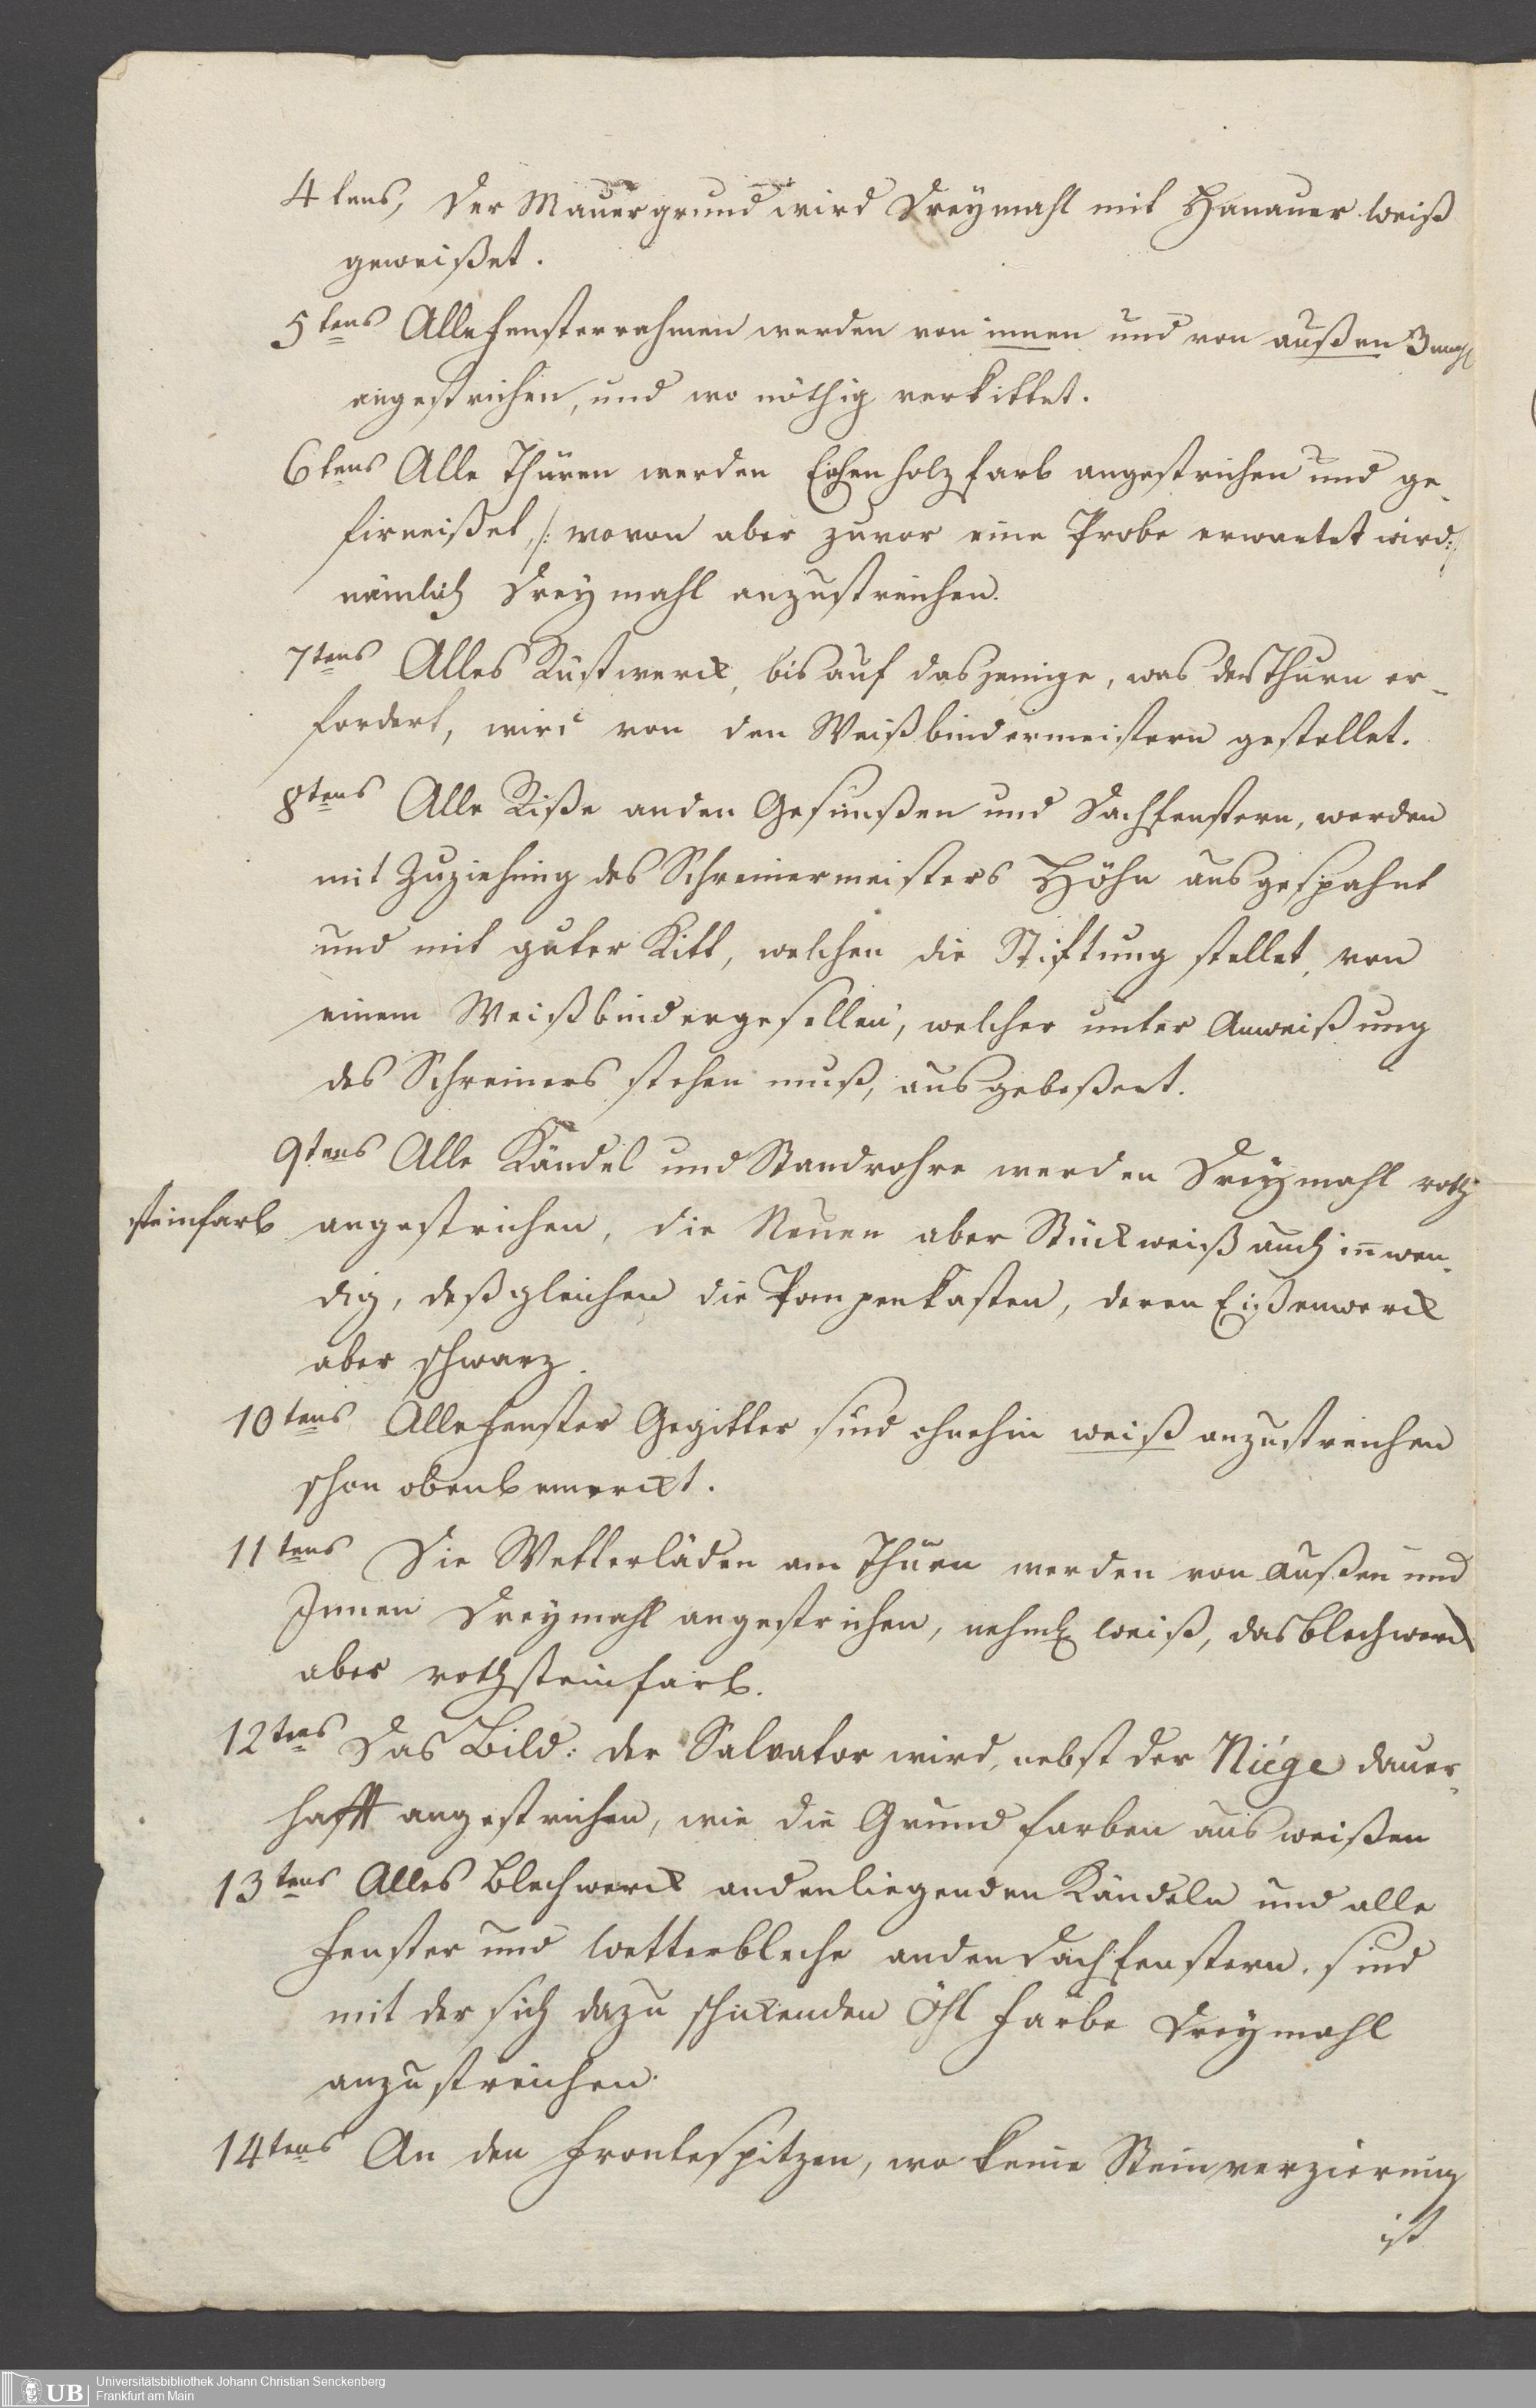 4tens, Der Mauergrund wird Dreymahl mit Hanauer weiß
geweißet.
5tens Alle Fensterrahmen werden von innen und von außen 3mahl
angestrichen, und wo nöthig verkittet.
6tens Alle Thüren werden Eichenholzfarb angestrichen und ge-
firneißet, /: wovon aber zuvor eine Probe erwartet wird :/
nämlich Dreymahl anzustreichen.
7tens Alles Rüstwerck, bis auf dasjenige, was der Thurn er-
fordert, wird von den Weißbindermeistern gestellet.
8tens Alle Riße an den Gesimßen und Dachfenstern, werden
mit Zuziehung des Schreinermeisters Höhn ausgespahnt
und mit guter Kitt, welchen die Stiftung stellet, von
einem Weißbindergesellen, welcher unter Anweißung
des Schreiners stehen muß, ausgebeßert.
9tens Alle Kändel und Standrohre werden Dreymahl roth
steinfarb angestrichen, die Neuen aber Stückweiß auch inwen-
dig, deßgleichen die Pompenkasten, deren Eißenwerck
aber schwarz.
10tens Alle Fenster Gegitter sind ohnehin weiß anzustreichen
schon oben bemerckt.
11tens Die Wetterläden am Thurn werden von Außen und
Innen Dreymahl angestrichen, nehml. weiß, das Blechwerck
aber rothsteinfarb.
12tens Das Bild: der Salvator wird, nebst der Niége dauer-
hafft angestrichen, wie die Grundfarben ausweißen
13tens Alles Blechwerck an den liegenden Kändeln und alle
Fenster und Wetterbleche an den Dachfenstern, sind
mit der sich dazu schickenden Öhl Farbe Dreymahl
anzustreichen.
14tens An den Frontespitzen, wo keine Steinverzierung
ist
Universitätsbibliothek Johann Christian Senckenberg
Frankfurt am Main
UB